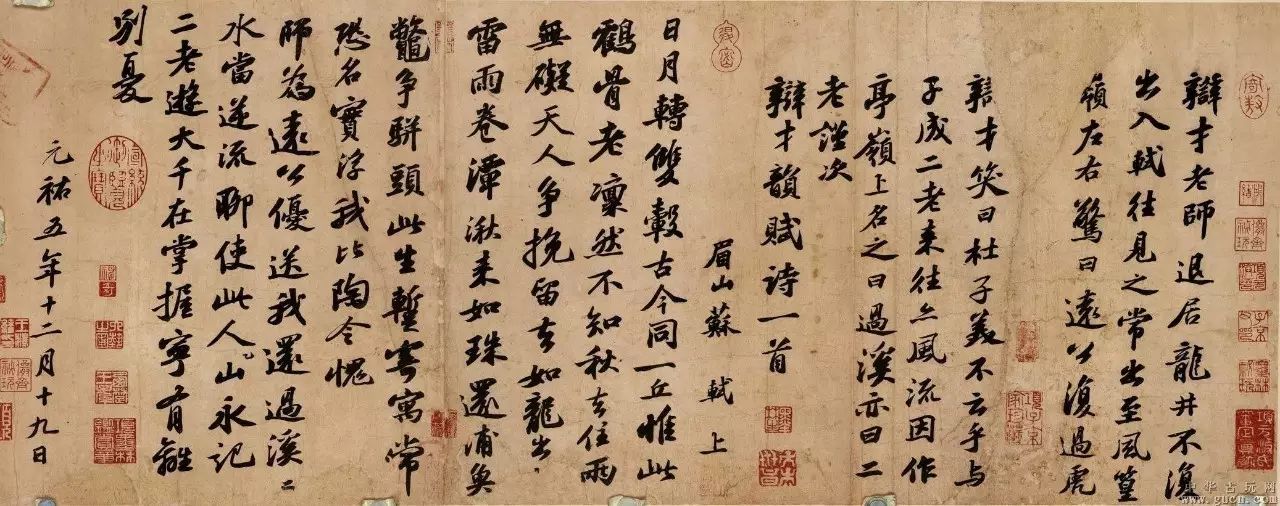 辯才老師退居龍井不復
出入軾往見之常出至風篁
嶺左右驚曰遠公復過虎
辯才笑曰杜子美不云乎與
子成二老來往亦風流因作
亭嶺上名之曰過溪亦曰二
老謹次
辯才韻賦詩一首
眉山蘇軾上
日月轉雙轂古今同一丘惟此
鶴骨老凜然不知秋去住兩
無礙天人爭挽留去如龍出
雷雨卷潭湫來如珠還浦魚
鱉爭駢頭此生暫寄寓常
恐名實浮我比陶令愧
師為遠公優送我還過溪〻
水當逆流聊使此人山永記
二老遊大千在掌握寧有離
別憂
元祐五年十二月十九日
中华古玩网
www.gucn.com